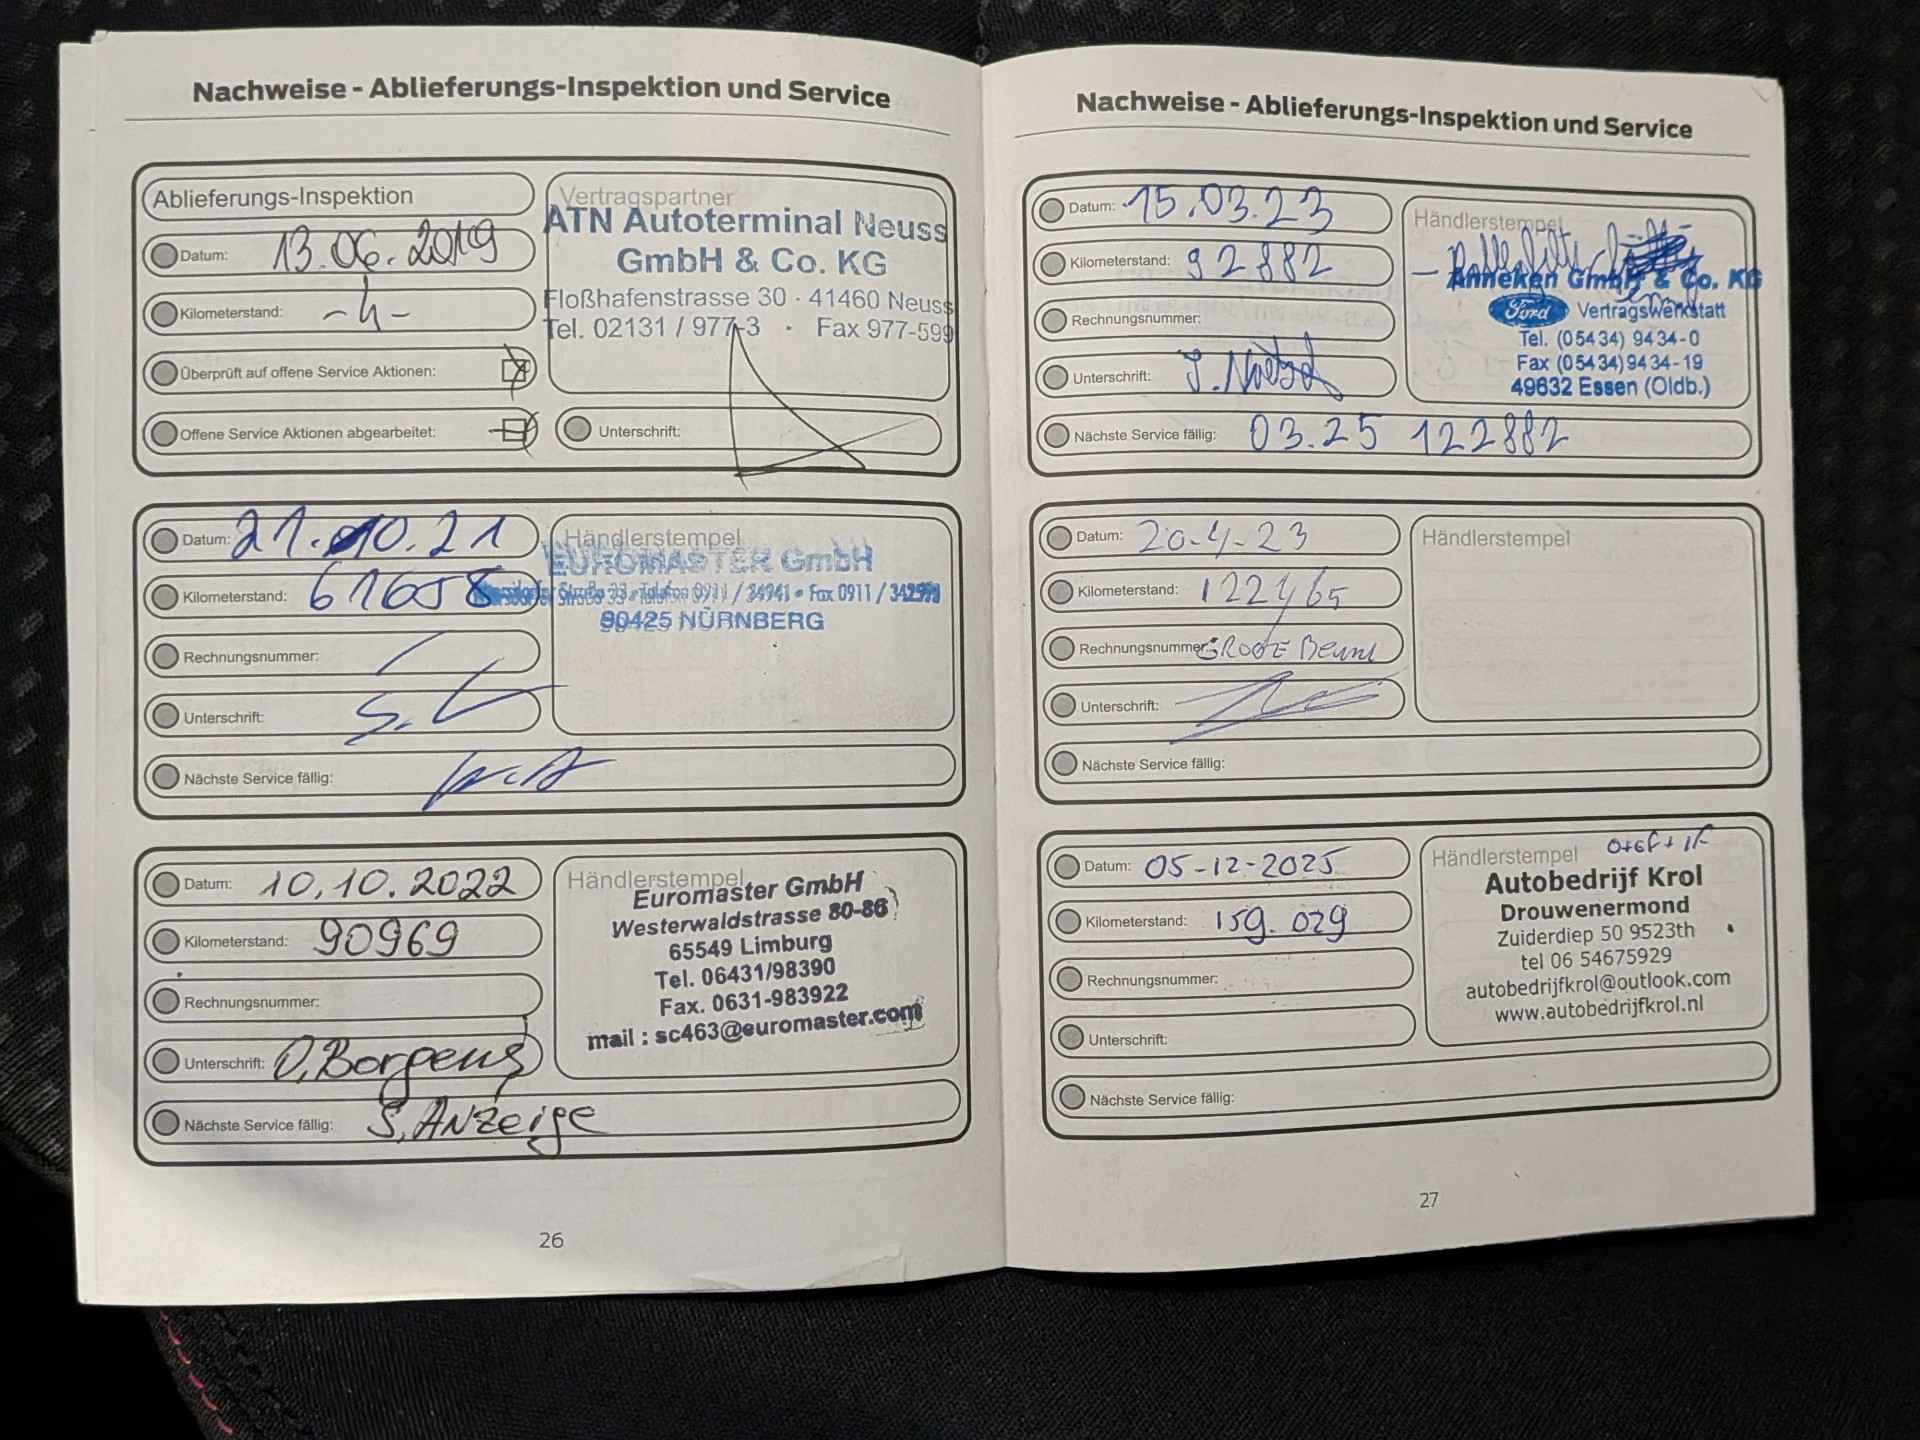 Nachweise - Ablieferungs-Inspektion und Service
Ablieferungs-Inspektion
Datum: 13.06.2019
Kilometerstand: -4-
Überprüft auf offene Service Aktionen:
Offene Service Aktionen abgearbeitet:
Vertragspartner
ATN Autoterminal Neuss
GmbH & Co. KG
Floßhafenstrasse 30 · 41460 Neuss
Tel. 02131 / 977-3 · Fax 977-599
Unterschrift:
Datum: 21.10.21
Kilometerstand: 61658
Rechnungsnummer:
Unterschrift:
Nächste Service fällig:
Händlerstempel
EUROMASTER GmbH
Straße 33 · Telefon 0911 / 34941 • Fax 0911 /
90425 NÜRNBERG
Datum: 10.10.2022
Kilometerstand: 90969
Rechnungsnummer:
Unterschrift:
Nächste Service fällig: S. Anzeige
Händlerstempel
Euromaster GmbH
Westerwaldstrasse 80-86
65549 Limburg
Tel. 06431/98390
Fax. 0631-983922
mail : sc463@euromaster.com
26
Nachweise - Ablieferungs-Inspektion und Service
Datum: 15.03.23
Kilometerstand: 92882
Rechnungsnummer:
Unterschrift:
Nächste Service fällig: 03.25 122882
Händlerstempel
Anneken GmbH & Co. KG
Ford Vertragswerkstatt
Tel. (05434) 9434-0
Fax (05434) 9434-19
49632 Essen (Oldb.)
Datum: 20-4-23
Kilometerstand: 122465
Rechnungsnummer: GROOTE Beurt
Unterschrift:
Nächste Service fällig:
Händlerstempel
Datum: 05-12-2025
Kilometerstand: 159.029
Rechnungsnummer:
Unterschrift:
Nächste Service fällig:
Händlerstempel
Autobedrijf Krol
Drouwenermond
Zuiderdiep 50 9523th
tel 06 54675929
autobedrijfkrol@outlook.com
www.autobedrijfkrol.nl
27